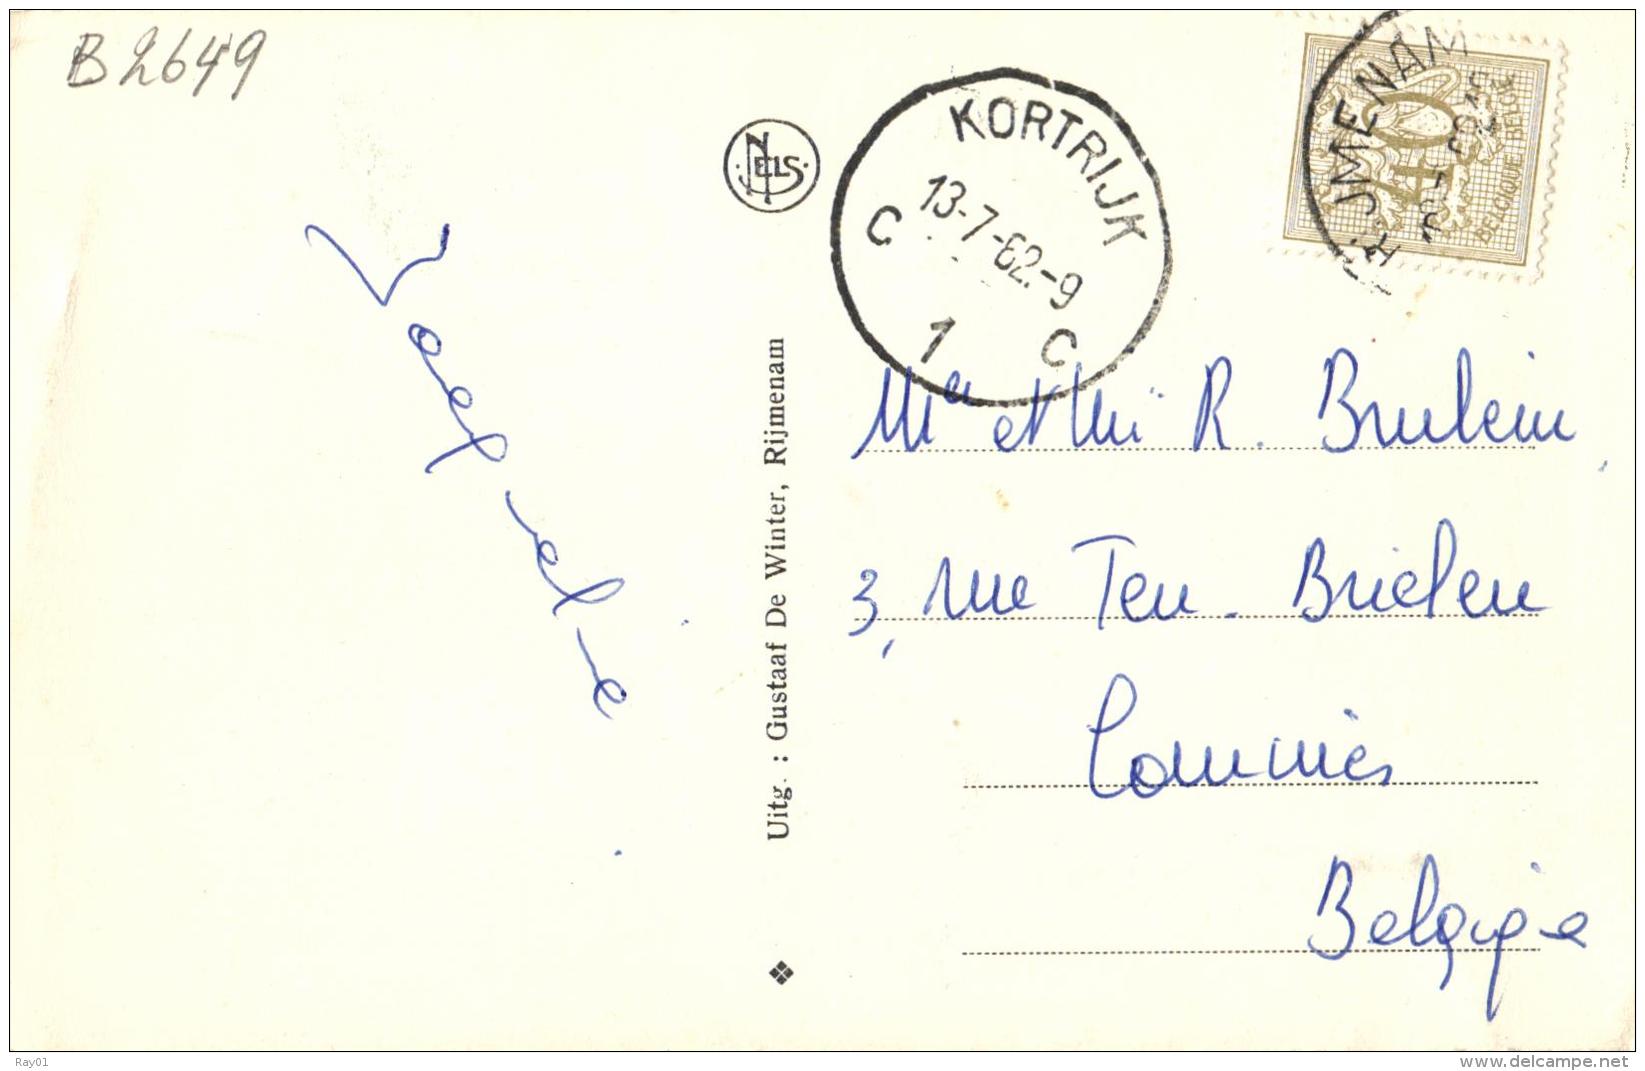 B2649
NELS
KORTRIJK
13-7-62.-9
C 1 C
RIJMENAM
40
BELGIQUE BELGIË
R.
3, rue Ten-Brielen
Comines
Belgique
Uitg. : Gustaaf De Winter, Rijmenam
Ray01
www.delcampe.net